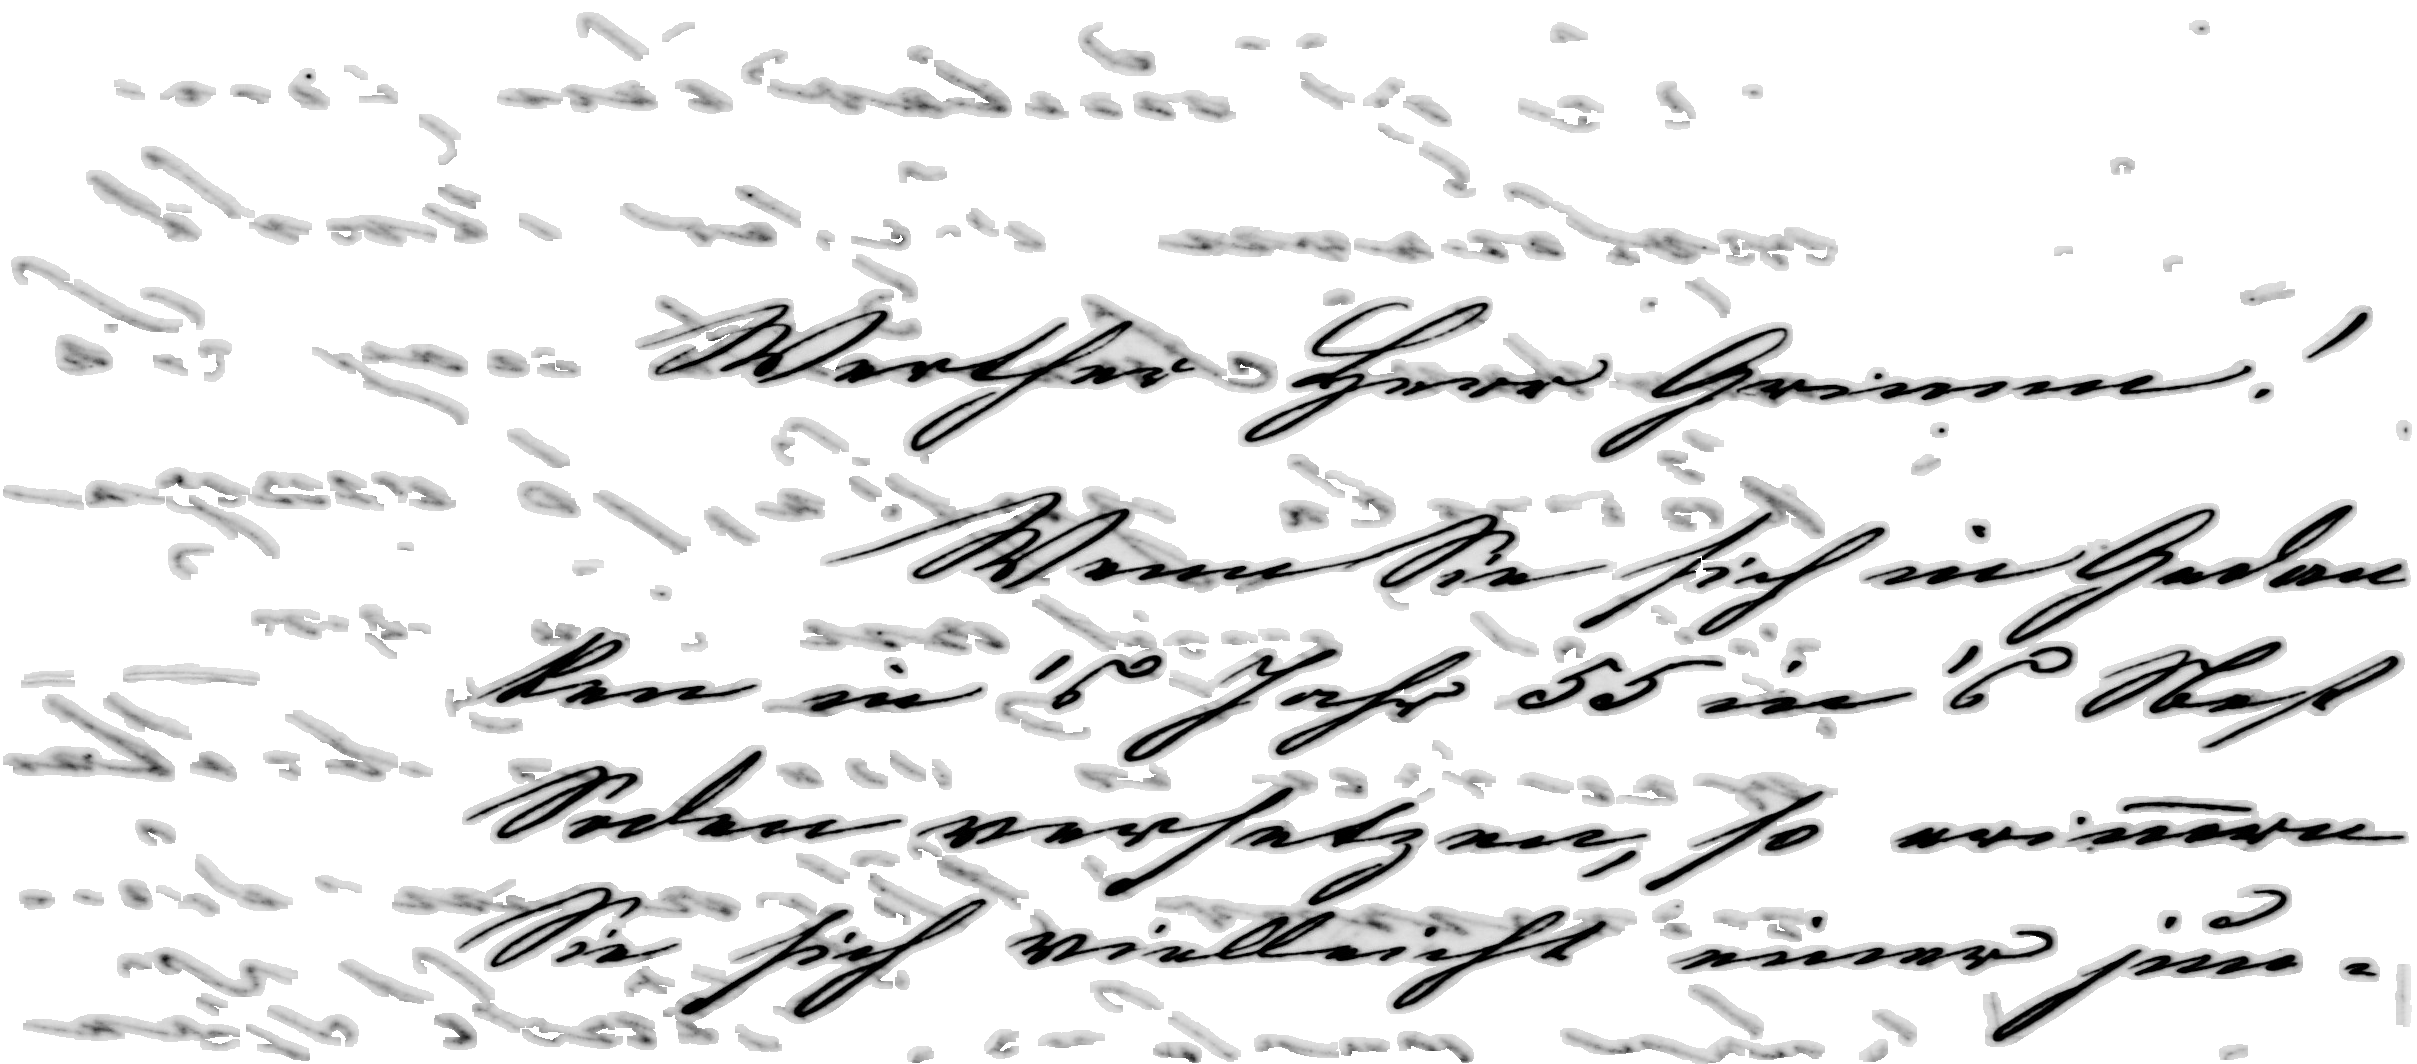 Werther Herr Grimm!
Wenn Sie sich in Gedan
ken in's Jahr 55 in's Bass
Soden versetzen, so erinnern
Sie sich vielleicht einer jün-